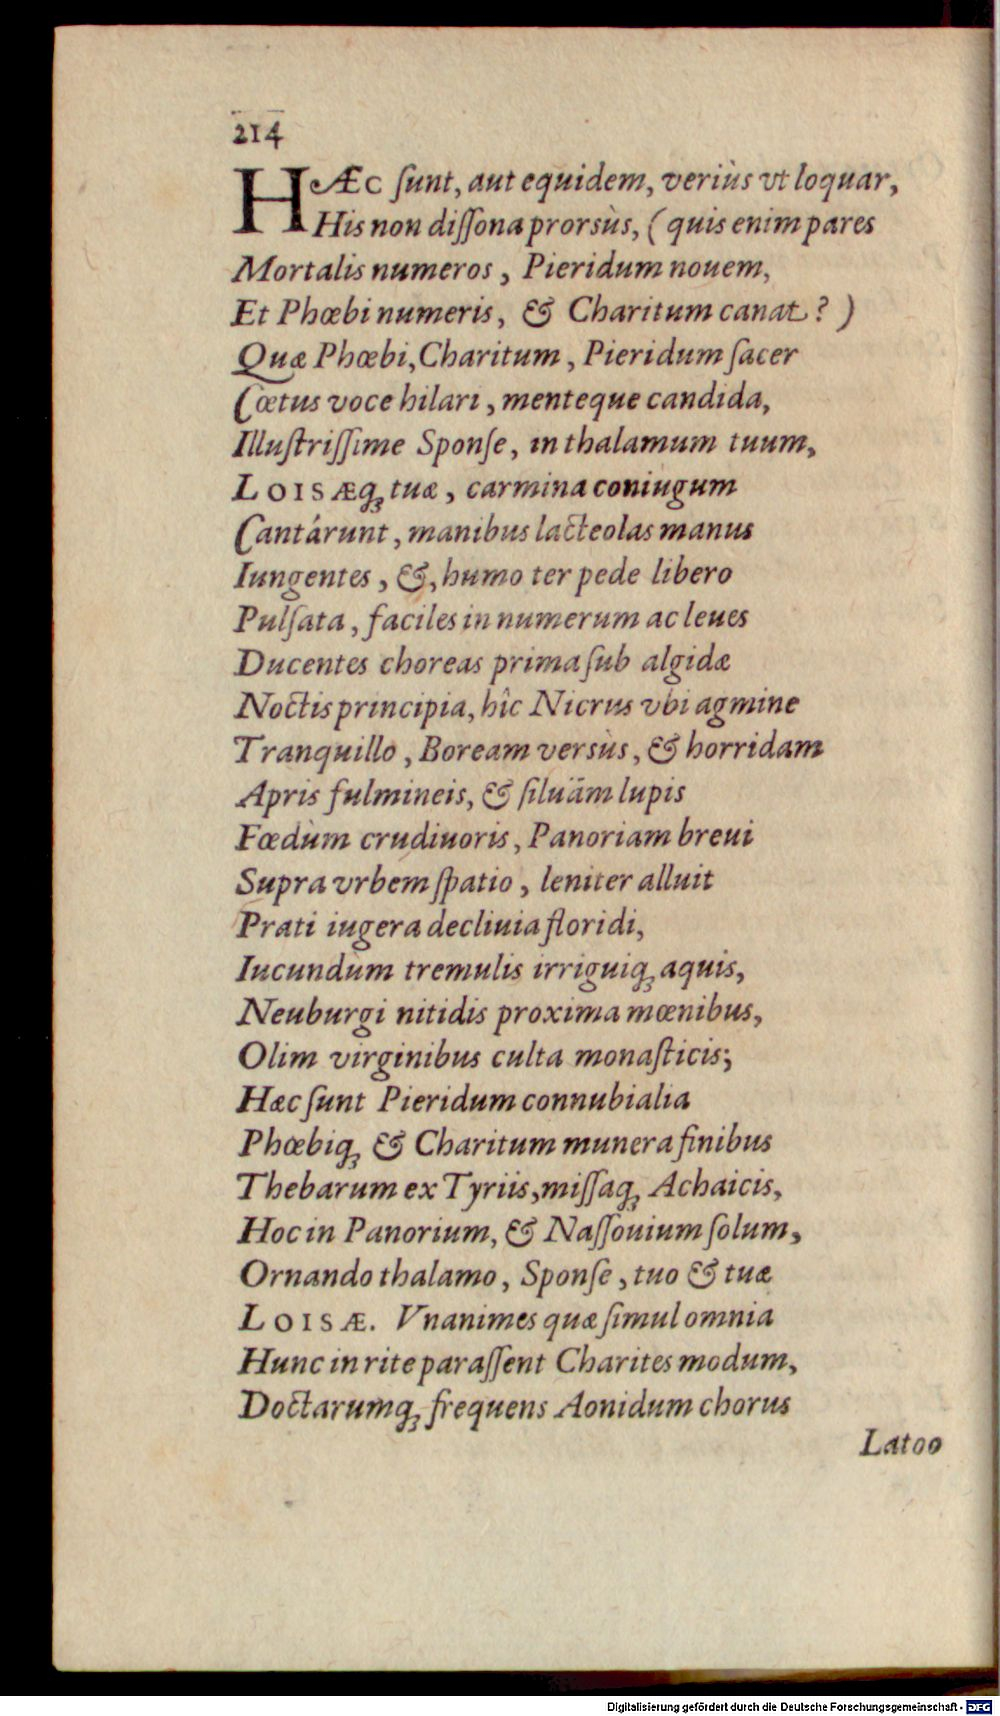 214
HÆC ſunt, aut equidem, veriùs vt loquar,
His non diſſona prorsùs, ( quis enim pares
Mortalis numeros, Pieridum nouem,
Et Phœbi numeris, & Charitum canat? )
Quæ Phœbi, Charitum, Pieridum ſacer
Cœtus voce hilari, menteque candida,
Illuſtriſſime Sponſe, in thalamum tuum,
LOISÆq́ꝫ tuæ, carmina coniugum
Cantárunt, manibus lacteolas manus
Iungentes, &, humo ter pede libero
Pulſata, faciles in numerum ac leues
Ducentes choreas prima ſub algidæ
Noctis principia, hîc Nicrus vbi agmine
Tranquillo, Boream versùs, & horridam
Apris fulmineis, & ſiluäm lupis
Fœdùm crudiuoris, Panoriam breui
Supra vrbem ſpatio, leniter alluit
Prati iugera decliuia floridi,
Iucundùm tremulis irriguiqꝫ aquis,
Neuburgi nitidis proxima mœnibus,
Olim virginibus culta monaſticis;
Hæc ſunt Pieridum connubialia
Phœbiqꝫ & Charitum munera finibus
Thebarum ex Tyriis, miſſaqꝫ Achaicis,
Hoc in Panorium, & Naſſouium ſolum,
Ornando thalamo, Sponſe, tuo & tuæ
LOISÆ. Vnanimes quæ ſimul omnia
Hunc in rite paraſſent Charites modum,
Doctarumqꝫ frequens Aonidum chorus
Latoo
Digitalisierung gefördert durch die Deutsche Forschungsgemeinschaft - DFG